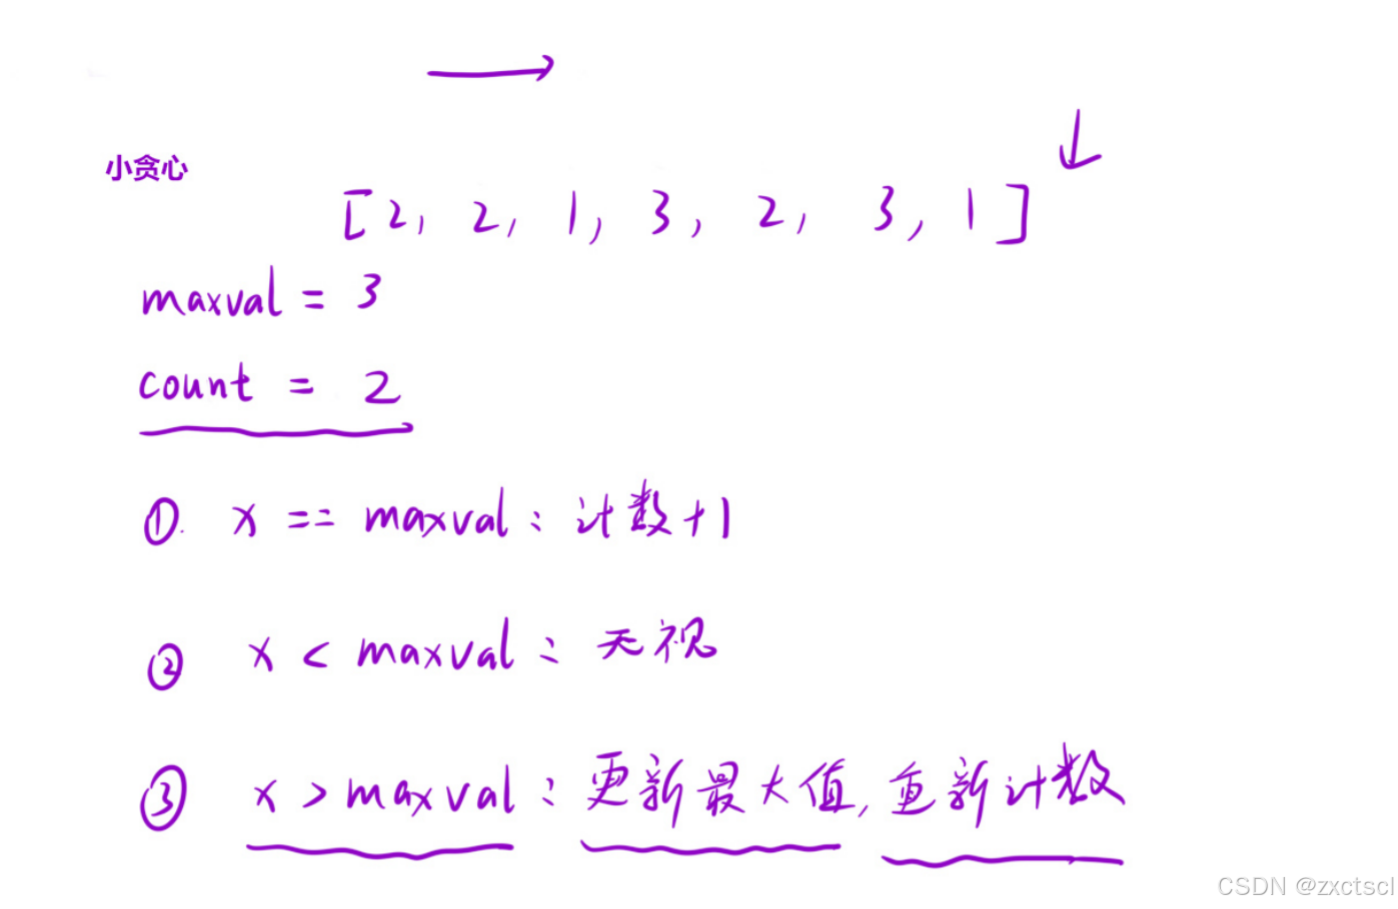 小贪心
[2, 2, 1, 3, 2, 3, 1]
maxval = 3
count = 2
①. x == maxval: 计数+1
② x < maxval: 无视
③ x > maxval: 更新最大值, 重新计数
CSDN @zxctscl